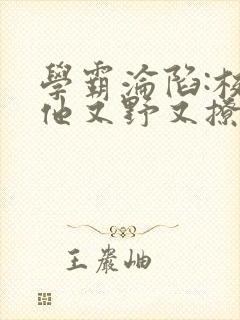 學霸淪陷:校
他又野又撩
王巖岫